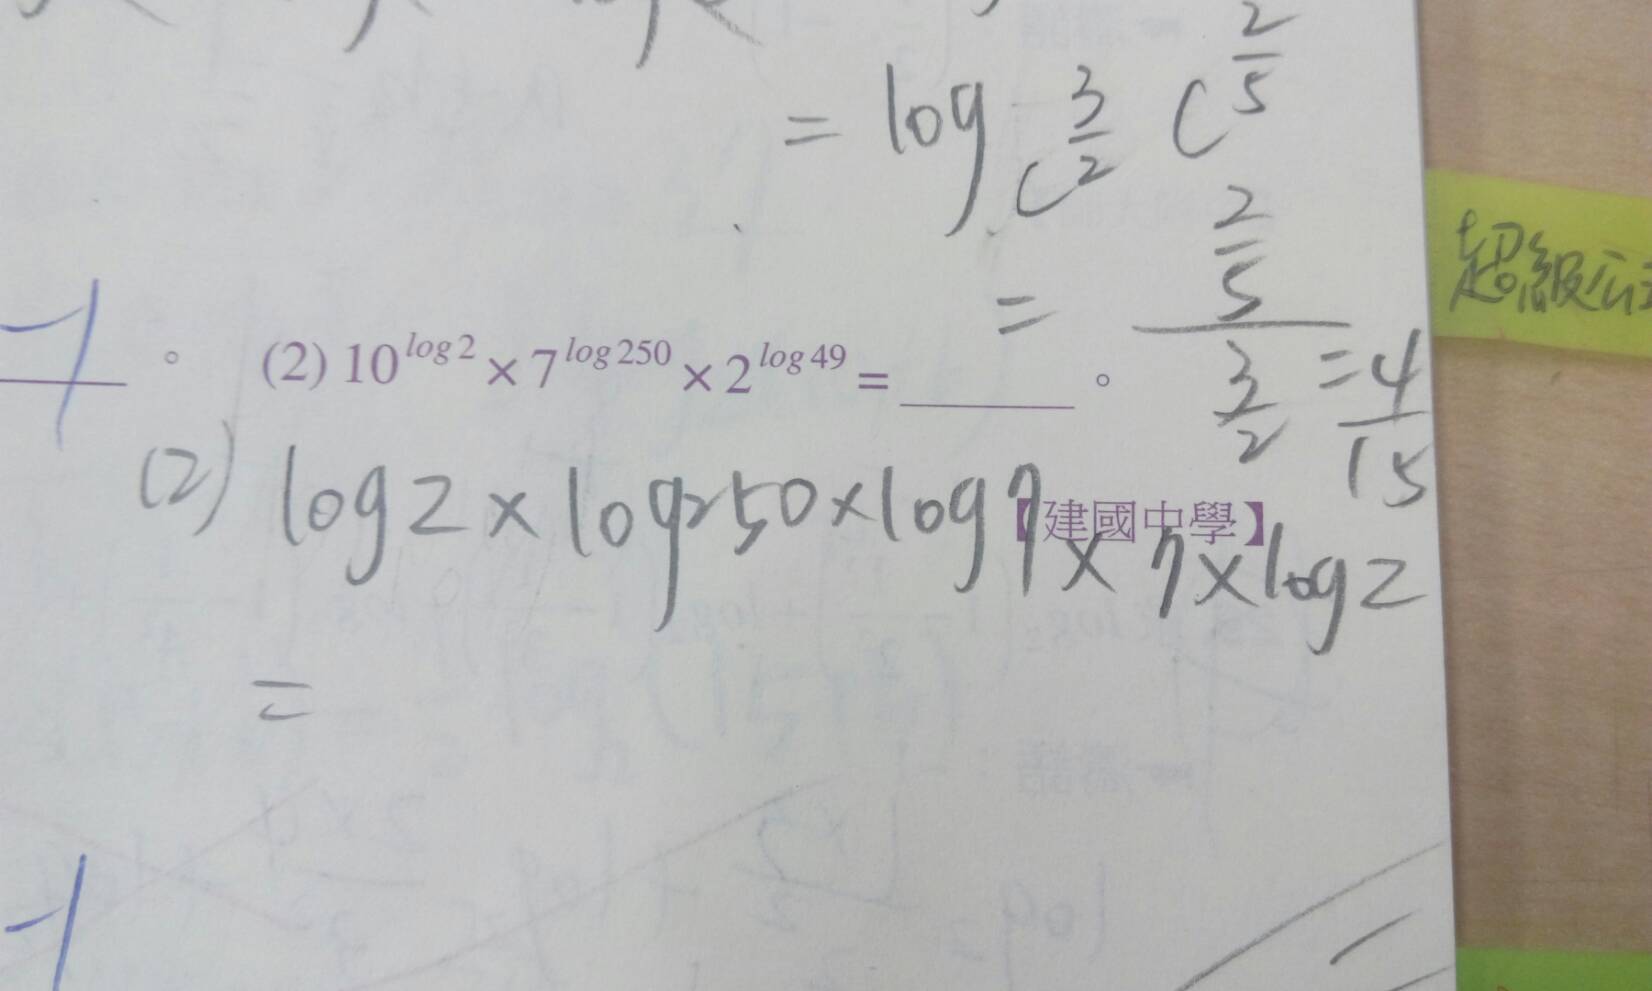 = log_{c^{3/2}} c^{2/5}
= \frac{\frac{2}{5}}{\frac{3}{2}} = \frac{4}{15}
超級公
。 (2) 10^{log 2} × 7^{log 250} × 2^{log 49} = ______ 。
(2) log2 × log250 × log7 × 7 × log2
【建國中學】
=